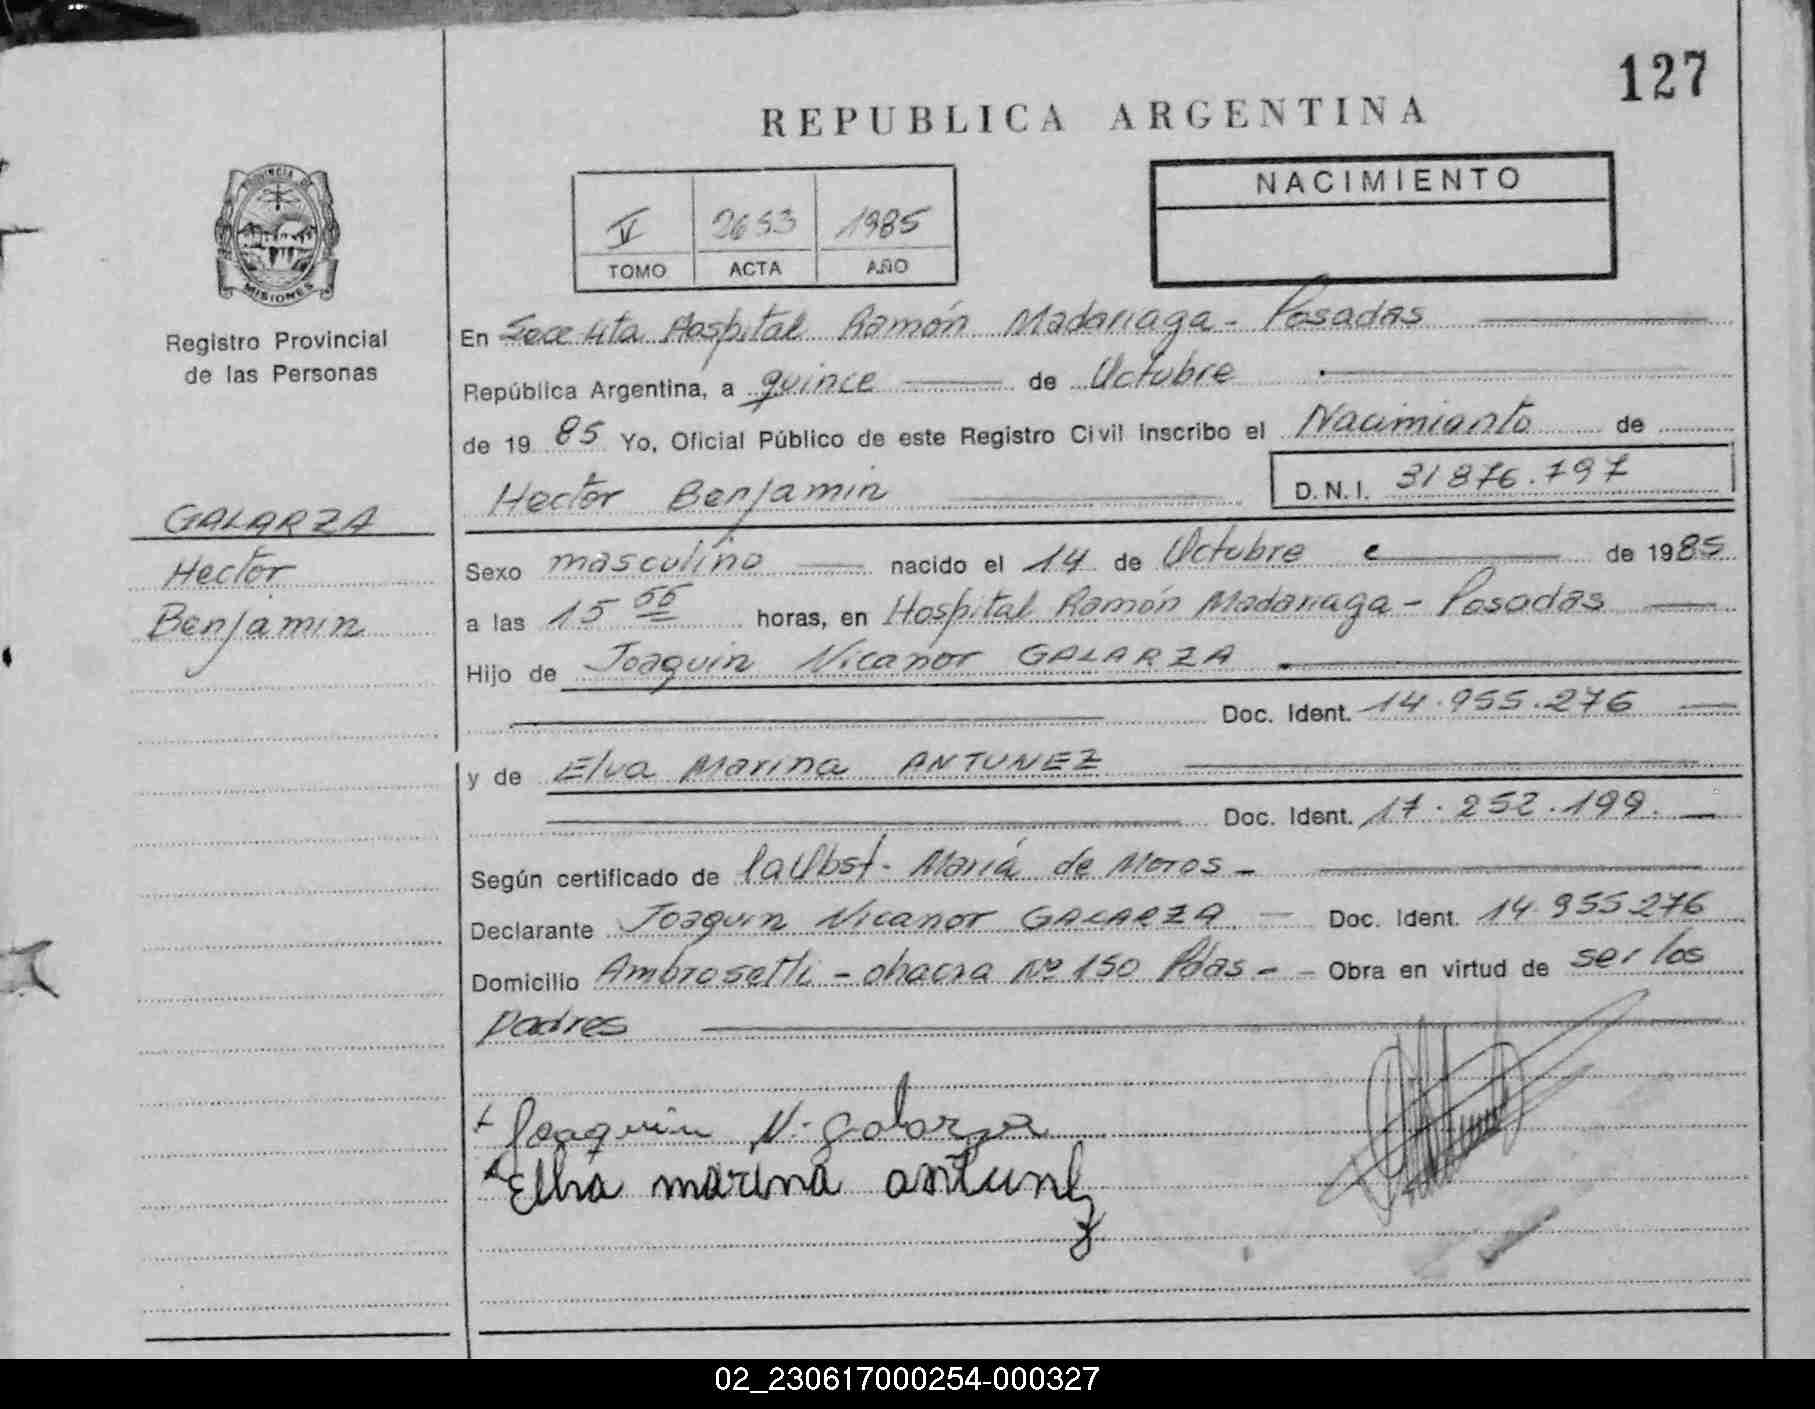 127
REPUBLICA ARGENTINA
PROVINCIA DE
MISIONES
Registro Provincial
de las Personas
V 2653 1985
TOMO ACTA AÑO
NACIMIENTO
En Secc 4ta Hospital Ramón Madariaga - Posadas
República Argentina, a quince de Octubre
de 19 85 Yo, Oficial Público de este Registro Civil Inscribo el Nacimiento de
Hector Benjamin D.N.I. 31876.797
GALARZA
Hector
Benjamin
Sexo masculino nacido el 14 de Octubre de 1985
a las 15 horas, en Hospital Ramón Madariaga - Posadas
Hijo de Joaquin Nicanor GALARZA
Doc. Ident. 14.955.276
y de Elva Marina ANTUNEZ
Doc. Ident. 17.252.199.
Según certificado de la Obst. María de Moros -
Declarante Joaquin Nicanor GALARZA - Doc. Ident. 14.955276
Domicilio Ambrosetti - chacra Nº 150 Pdas - - Obra en virtud de ser los
padres
Joaquin N. Galarza
Elba marina antunez
02_230617000254-000327